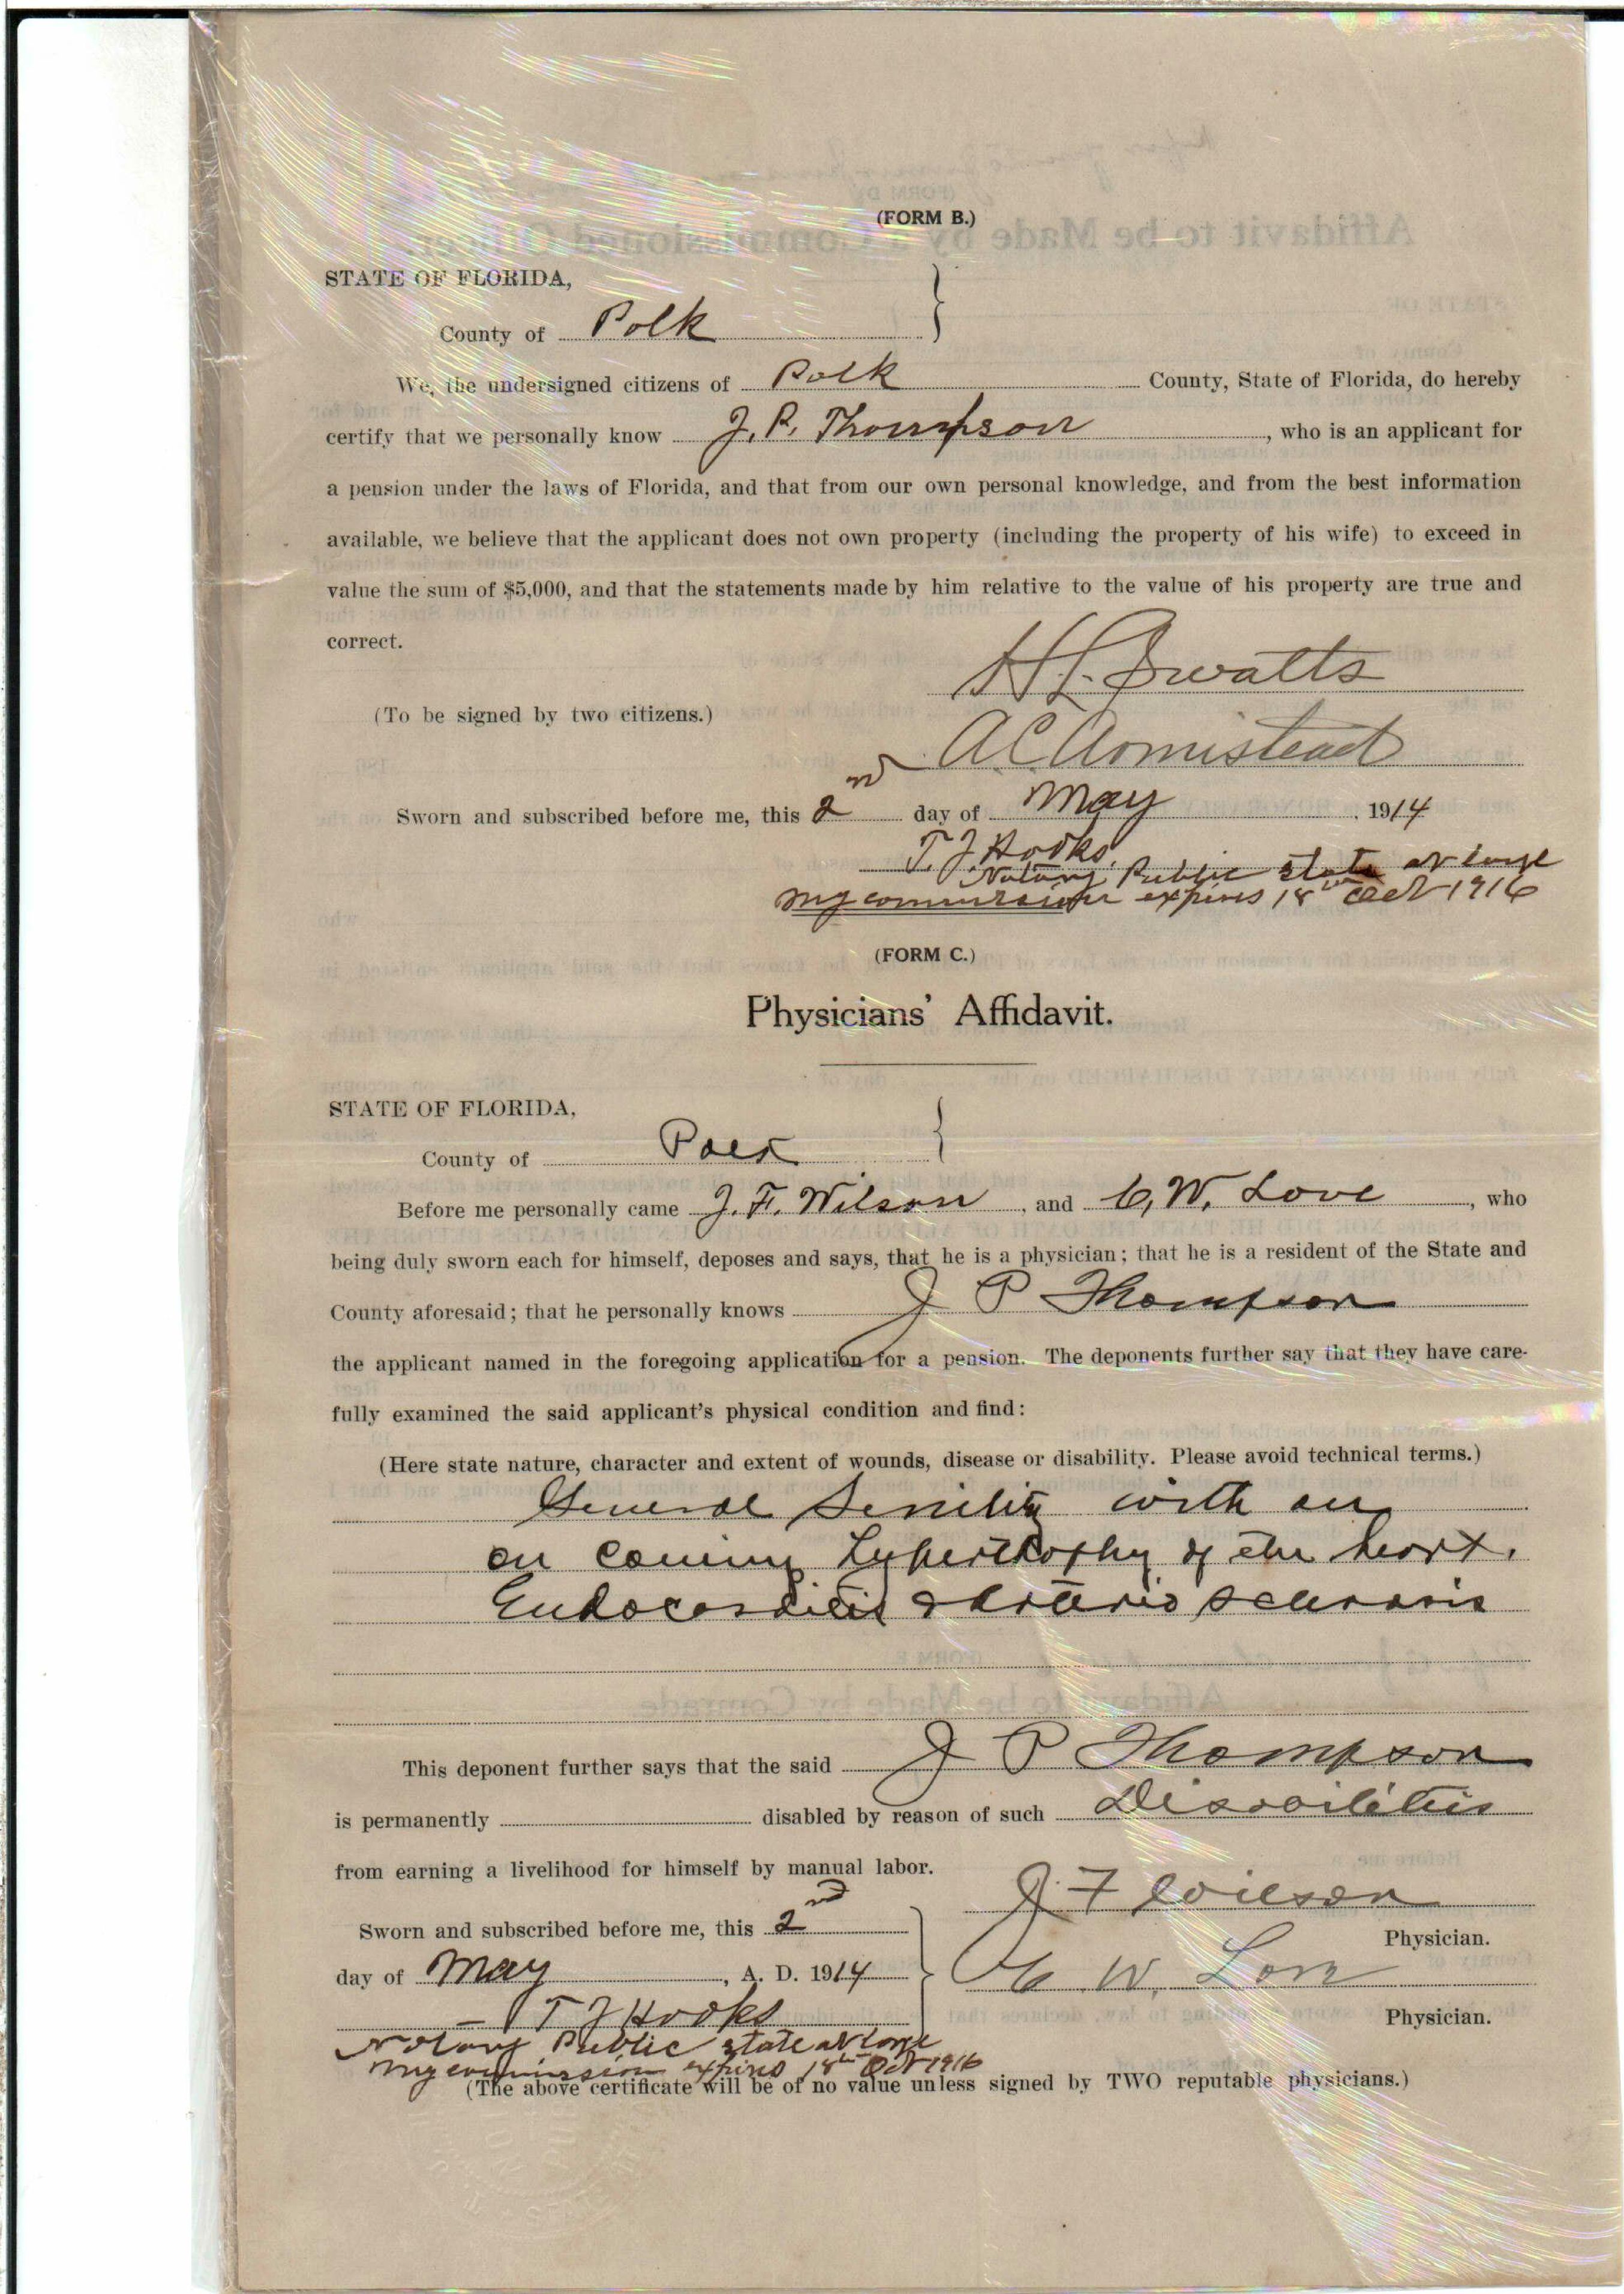 (FORM B.)
STATE OF FLORIDA,
County of Polk
We, the undersigned citizens of Polk County, State of Florida, do hereby
certify that we personally know J. P. Thompson, who is an applicant for
a pension under the laws of Florida, and that from our own personal knowledge, and from the best information
available, we believe that the applicant does not own property (including the property of his wife) to exceed in
value the sum of $5,000, and that the statements made by him relative to the value of his property are true and
correct.
H L. Swatts
(To be signed by two citizens.)
A C Armistead
Sworn and subscribed before me, this 2nd day of May, 1914
T. J. Hooks.
Notary Public State at large
My commission expires 18th Oct 1916
(FORM C.)
Physicians' Affidavit.
STATE OF FLORIDA,
County of Polk
Before me personally came J. F. Wilson, and C. W. Love, who
being duly sworn each for himself, deposes and says, that he is a physician; that he is a resident of the State and
County aforesaid; that he personally knows J P Thompson
the applicant named in the foregoing application for a pension. The deponents further say that they have care-
fully examined the said applicant's physical condition and find:
(Here state nature, character and extent of wounds, disease or disability. Please avoid technical terms.)
General Senility with an
on coming hypertrophy of the heart.
Endocarditis & Arterio sclerosis
This deponent further says that the said J P Thompson
is permanently disabled by reason of such Disabilities
from earning a livelihood for himself by manual labor.
J F Wilson
Sworn and subscribed before me, this 2nd
Physician.
day of May, A. D. 1914
C. W. Love
T J Hooks
Physician.
Notary Public state at large
My commission expires 18th Oct 1916
(The above certificate will be of no value unless signed by TWO reputable physicians.)